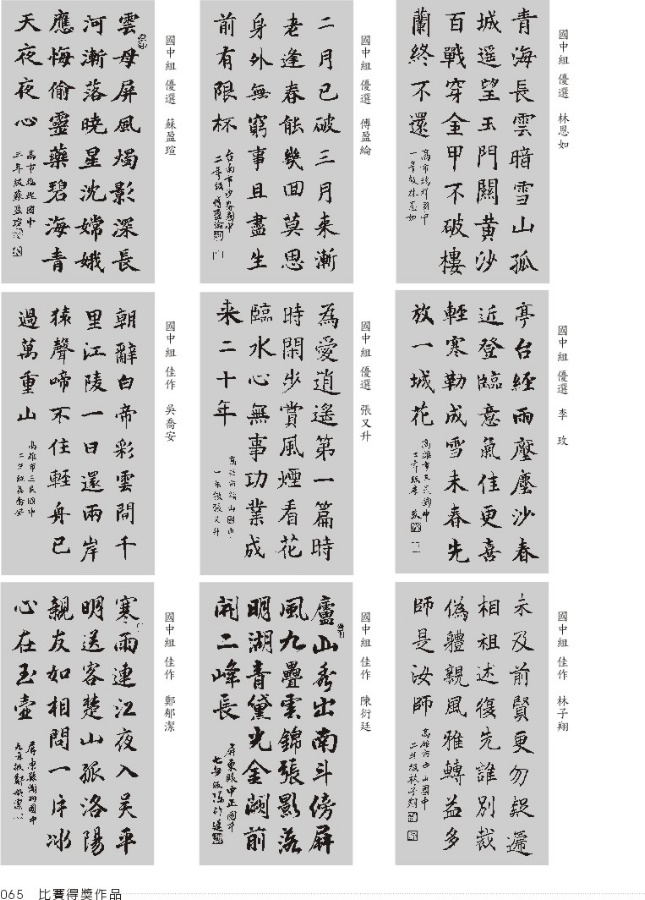 國中組 優選 林恩如
青海長雲暗雪山孤
城遥望玉門關黄沙
百戰穿金甲不破樓
蘭終不還
高市瑞祥國中
一年級林恩如
國中組 優選 傅盈綸
二月已破三月来漸
老逢春能幾回莫思
身外無窮事且盡生
前有限杯
台南市 國中
二年級傅盈綸
國中組 優選 蘇盈瑄
雲母屏風燭影深長
河漸落曉星沈嫦娥
應悔偷靈藥碧海青
天夜夜心
高市 國中
三年級蘇盈瑄
國中組 優選 李 玫
亭台經雨壓塵沙春
近登臨意氣佳更喜
輕寒勒成雪未春先
放一城花
高雄市 國中
年級李玫
國中組 優選 張又升
為愛逍遙第一篇時
時閑步賞風煙看花
臨水心無事功業成
来二十年
高雄市福山國中
一年級張又升
國中組 佳作 吳喬安
朝辭白帝彩雲間千
里江陵一日還兩岸
猿聲啼不住輕舟已
過萬重山
高雄市三民國中
二年級吳喬安
國中組 佳作 林子翔
未及前賢更勿疑遞
相祖述復先誰別裁
偽體親風雅轉益多
師是汝師
高雄市 山國中
二年級林子翔
國中組 佳作 陳衍廷
廬山秀出南斗傍屏
風九疊雲錦張影落
明湖青黛光金闕前
開二峰長
屏東縣中正國中
七年級陳衍廷
國中組 佳作 鄭郁潔
寒雨連江夜入吳平
明送客楚山孤洛陽
親友如相問一片冰
心在玉壺
屏東縣潮州國中
九年級鄭郁潔
065 比賽得獎作品